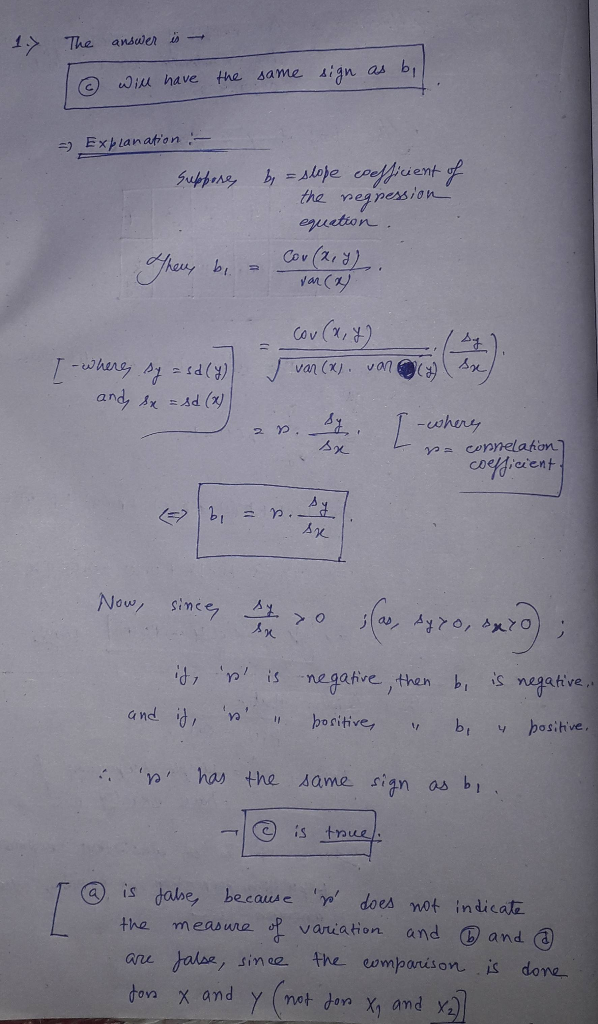 1.> The answer is →
(c) Will have the same sign as b₁.
⇒ Explanation :—
Suppose, b₁ = slope coefficient of
the regression
equation.
Then, b₁ = Cov(x, y) / var(x).
= Cov(x, y) / √(var(x). var(y)) . (sy / sx).
[-where, sy = sd(y)
and, sx = sd(x)]
= r. sy / sx. [-where,
r = correlation
coefficient]
⇔ b₁ = r. sy / sx.
Now, since, sy / sx > 0 ; (as, sy>0, sx>0) ;
if, 'r' is negative, then b₁ is negative,
and if, 'r' " positive, " b₁ " positive.
∴ 'r' has the same sign as b₁.
→ (c) is true.
[(a) is false, because 'r' does not indicate
the measure of variation and (b) and (d)
are false, since the comparison is done
for X and Y (not for X₁ and X₂)]